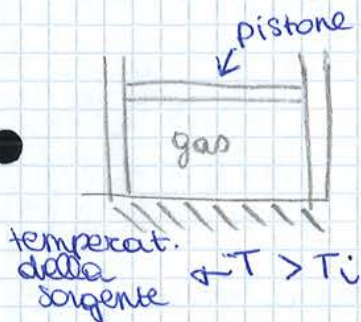 pistone
gas
temperat.
della
sorgente
← T > Ti